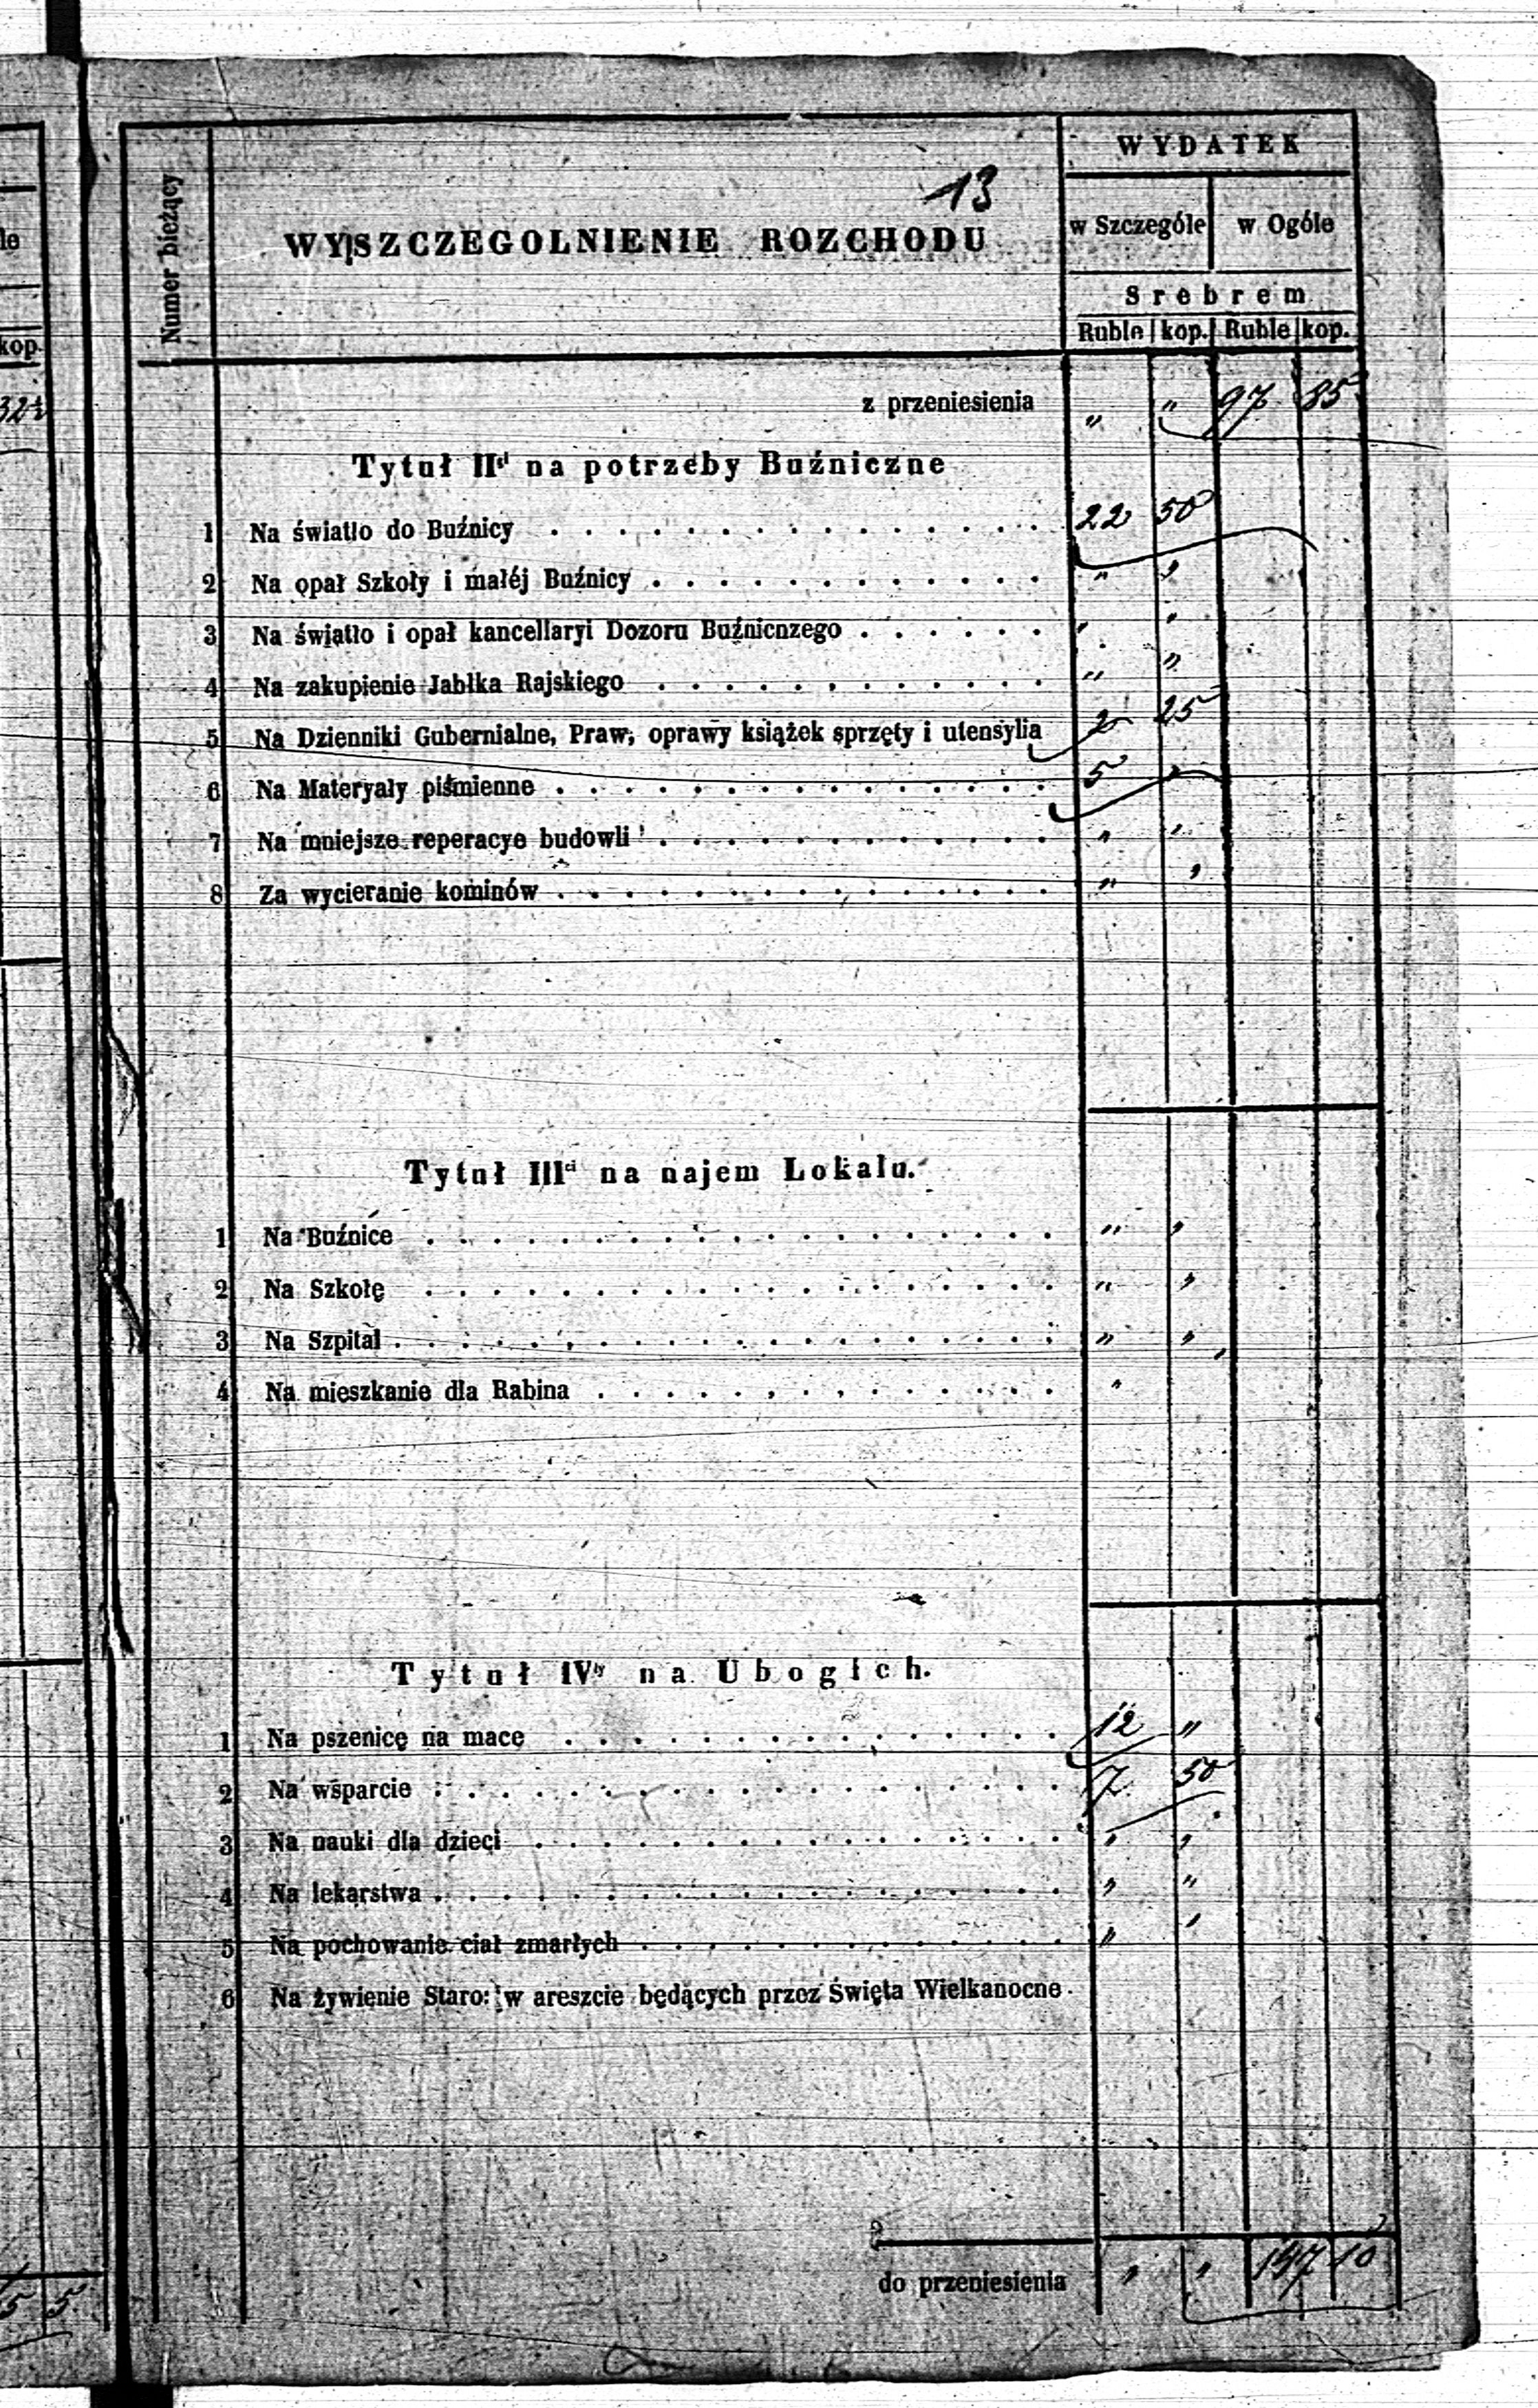 le
kop.
32½
13
Numer bieżący
WYSZCZEGOLNIENIE ROZCHODU
WYDATEK
w Szczególe w Ogóle
Srebrem
Ruble kop. Ruble kop.
z przeniesienia " " 97 85
Tytuł IId na potrzeby Buźniczne
1 Na światło do Buźnicy 22 50
2 Na opał Szkoły i małéj Buźnicy " "
3 Na światło i opał kancellaryi Dozoru Buźnicnzego " "
4 Na zakupienie Jabłka Rajskiego " "
5 Na Dzienniki Gubernialne, Praw, oprawy książek sprzęty i utensylia 2 25
6 Na Materyały piśmienne 5 "
7 Na mniejsze reperacye budowli " "
8 Za wycieranie kominów " "
Tytuł IIIci na najem Lokalu.
1 Na Buźnice " "
2 Na Szkołę " "
3 Na Szpital " "
4 Na mieszkanie dla Rabina " "
Tytuł IVty na Ubogich.
1 Na pszenicę na mace 12 "
2 Na wsparcie 7 50
3 Na nauki dla dzieci " "
4 Na lekarstwa " "
5 Na pochowanie ciał zmarłych " "
6 Na żywienie Staro: w areszcie będących przez Święta Wielkanocne
do przeniesienia " " 147 10
5 5